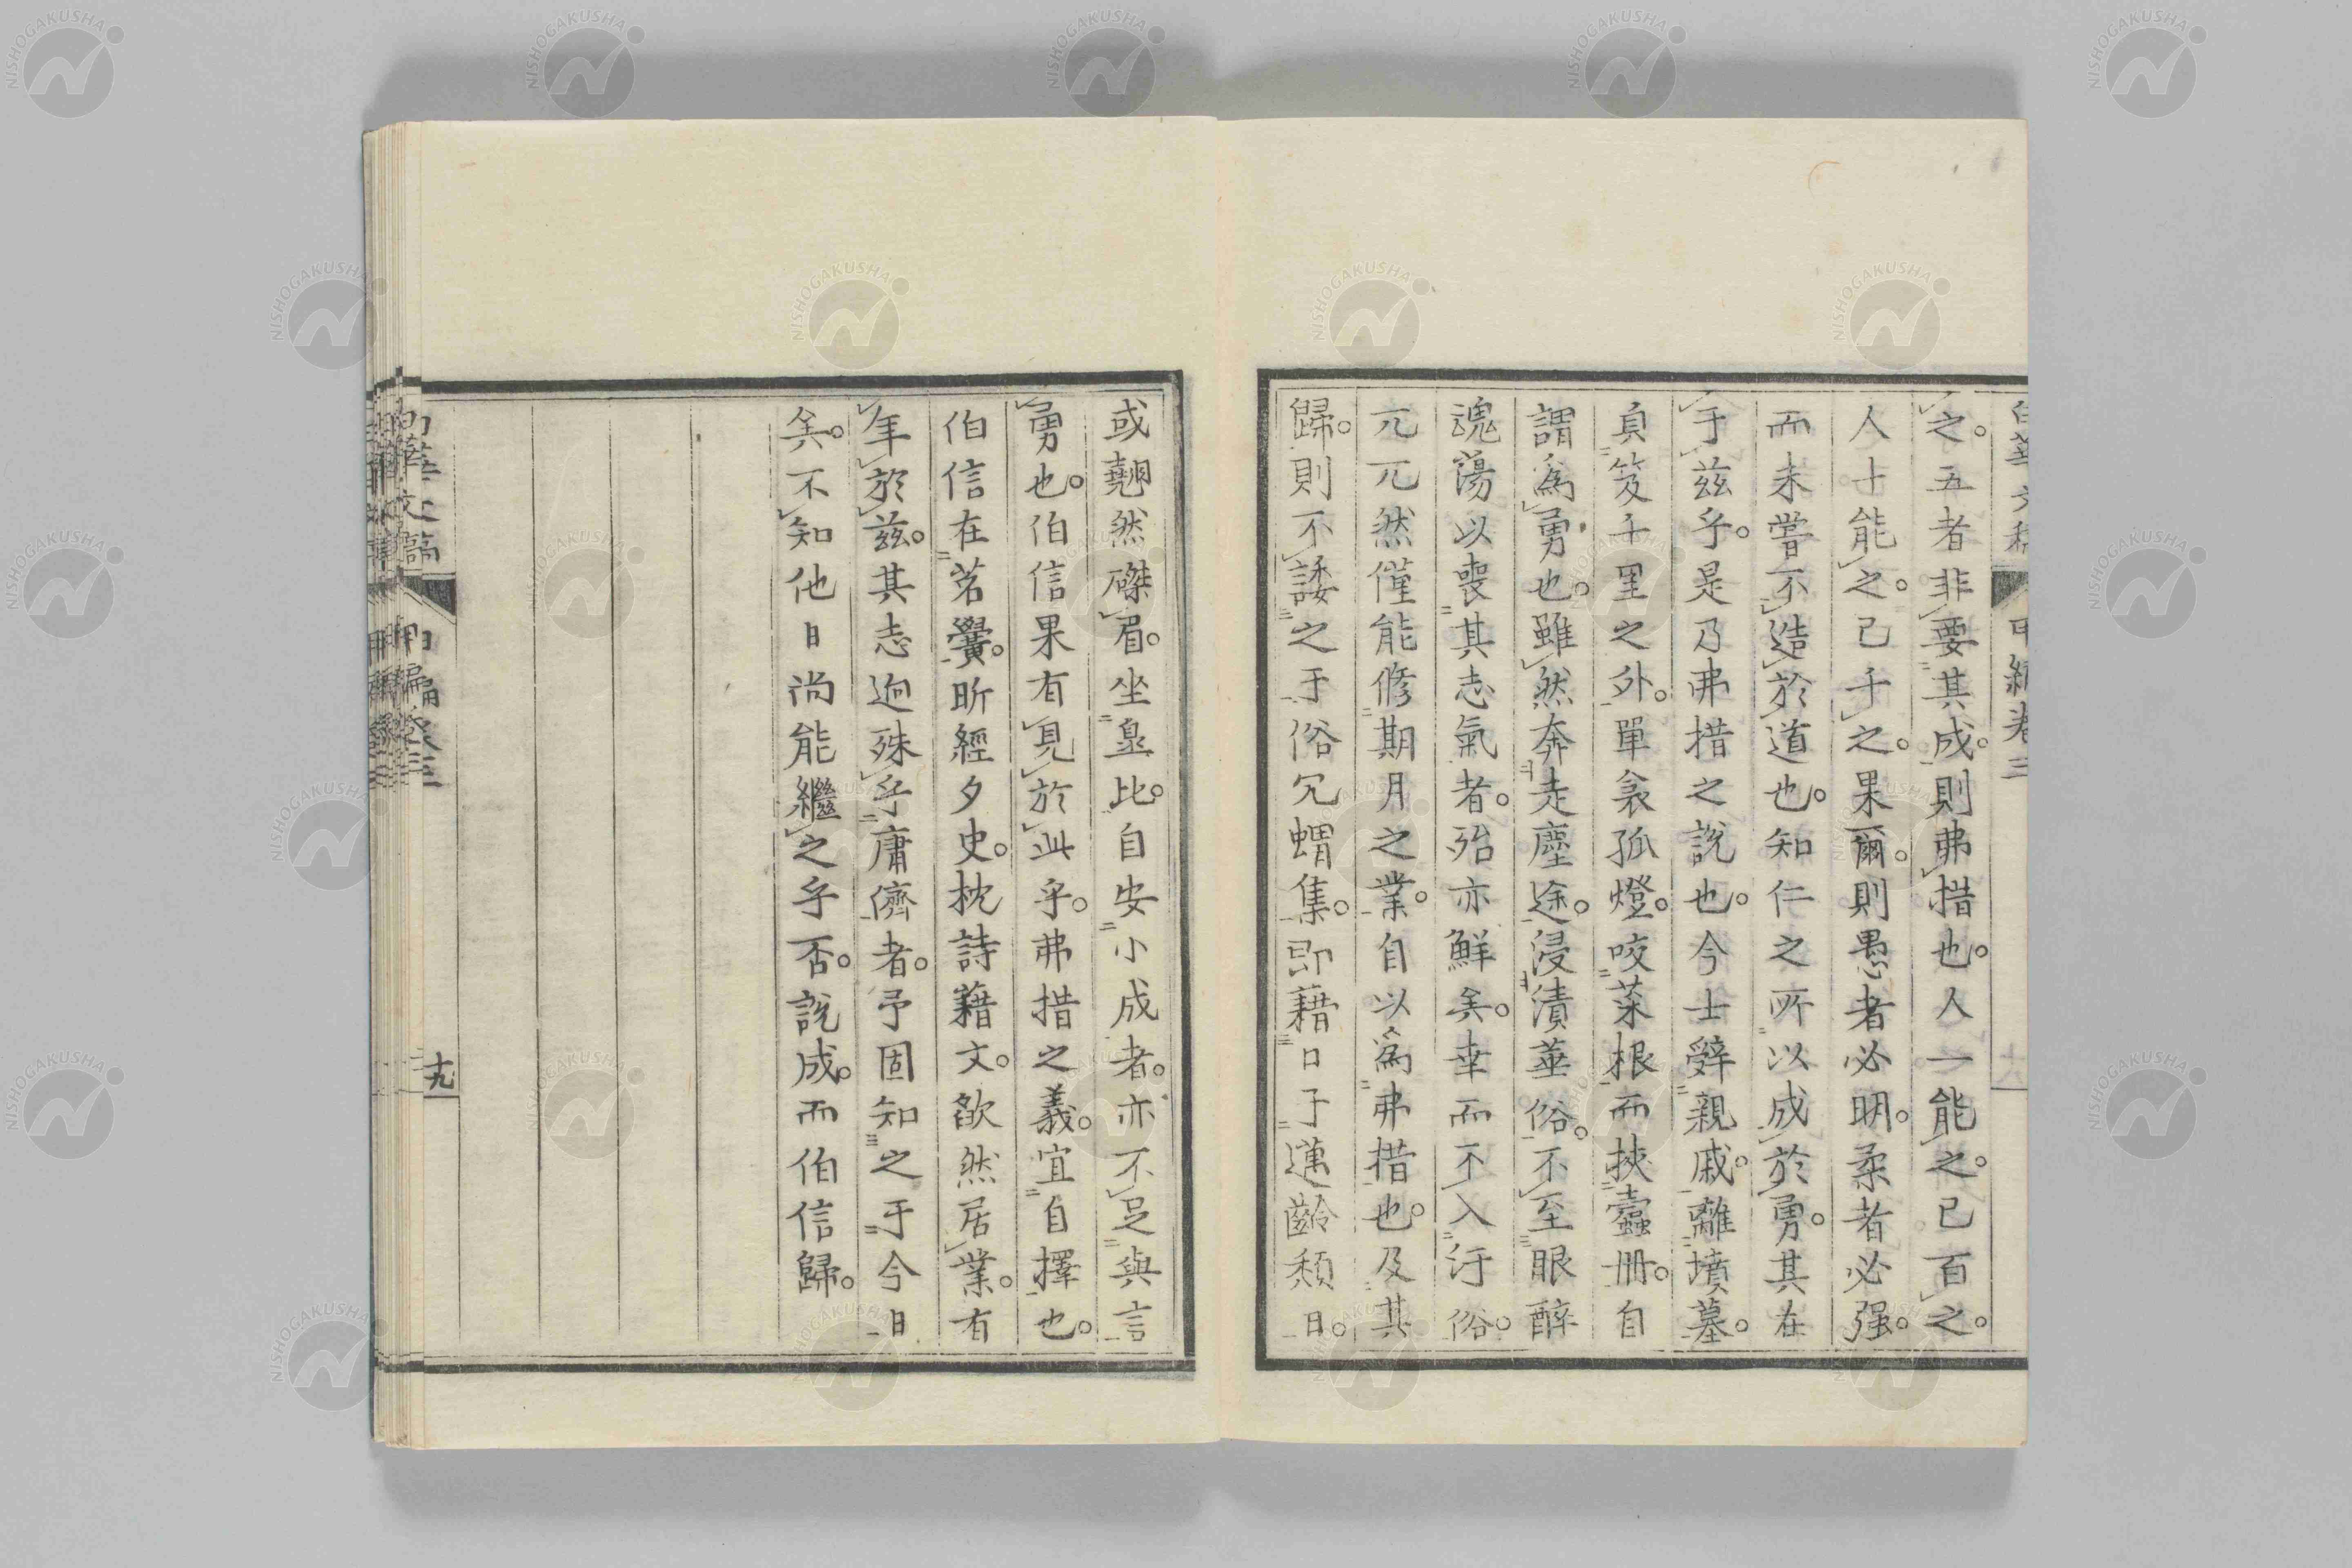 之。五者非要其成。則弗措也。人一能之。己百之。
人十能之。己千之。果爾。則愚者必明。柔者必强。
而未甞不造於道也。知仁之所以成於勇。其在
于茲乎。是乃弗措之說也。今士辭親戚。離墳墓。
負笈千里之外。單衾孤燈。咬菜根而挾蠧册。自
謂為勇也。雖然奔走塵途。浸漬華俗。不至眼醉
魂蕩以喪其志氣者。殆亦鮮矣。幸而不入汙俗。
兀兀然僅能修期月之業。自以為弗措也。及其
歸。則不諉之于俗冗蝟集。即藉口于邁齡頹日。
或翹然磔眉。坐皐比。自安小成者。亦不足與言
勇也。伯信果有見於此乎。弗措之義。宜自擇也。
伯信在茗黌。昕經夕史。枕詩藉文。欿然居業。有
年於茲。其志迥殊乎庸儕者。予固知之于今日
矣。不知他日尚能繼之乎否。說成。而伯信歸。
白華文稿 甲編卷三 十九
NISHOGAKUSHA